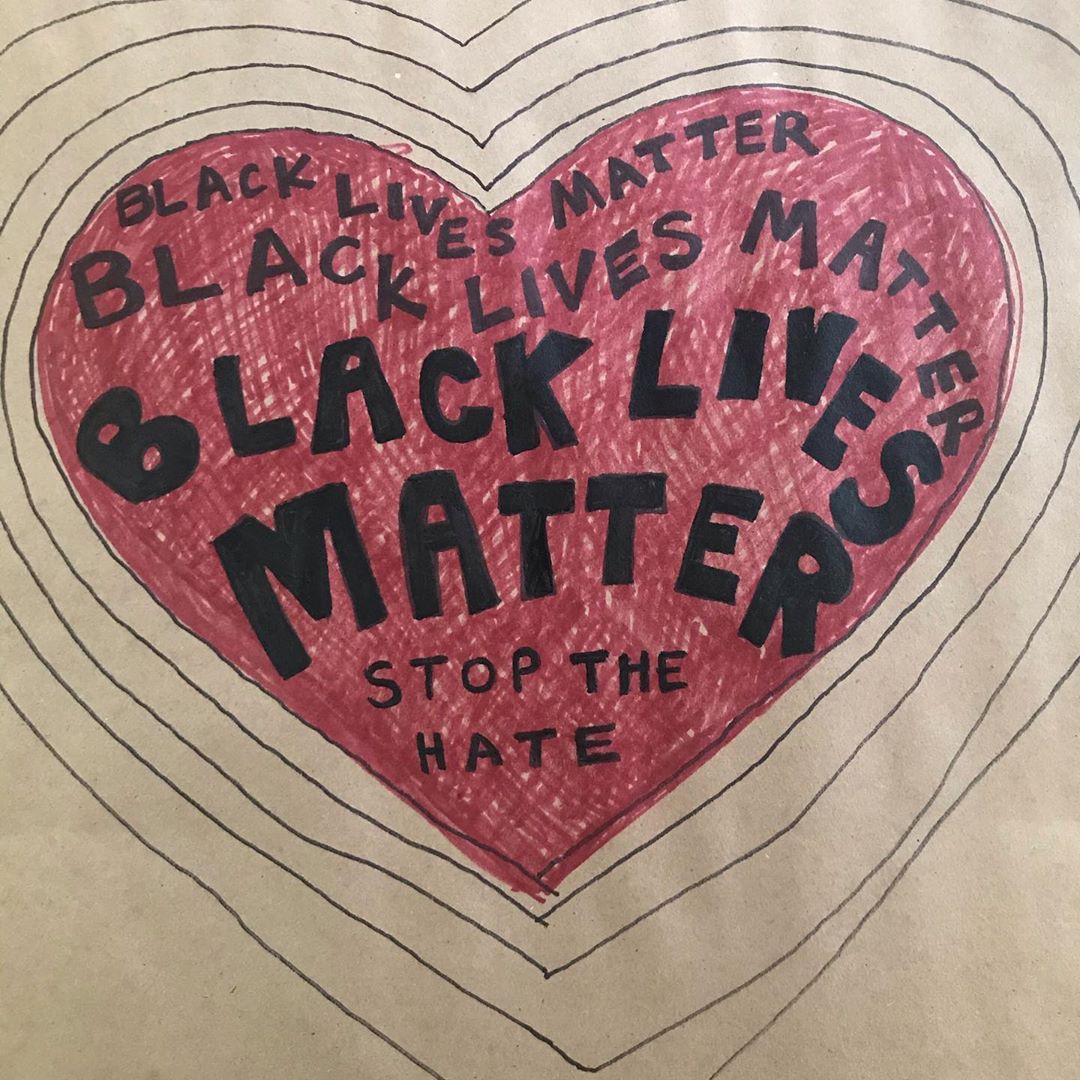 BLACK LIVES MATTER
BLACK LIVES MATTER
BLACK LIVES
MATTER
STOP THE
HATE